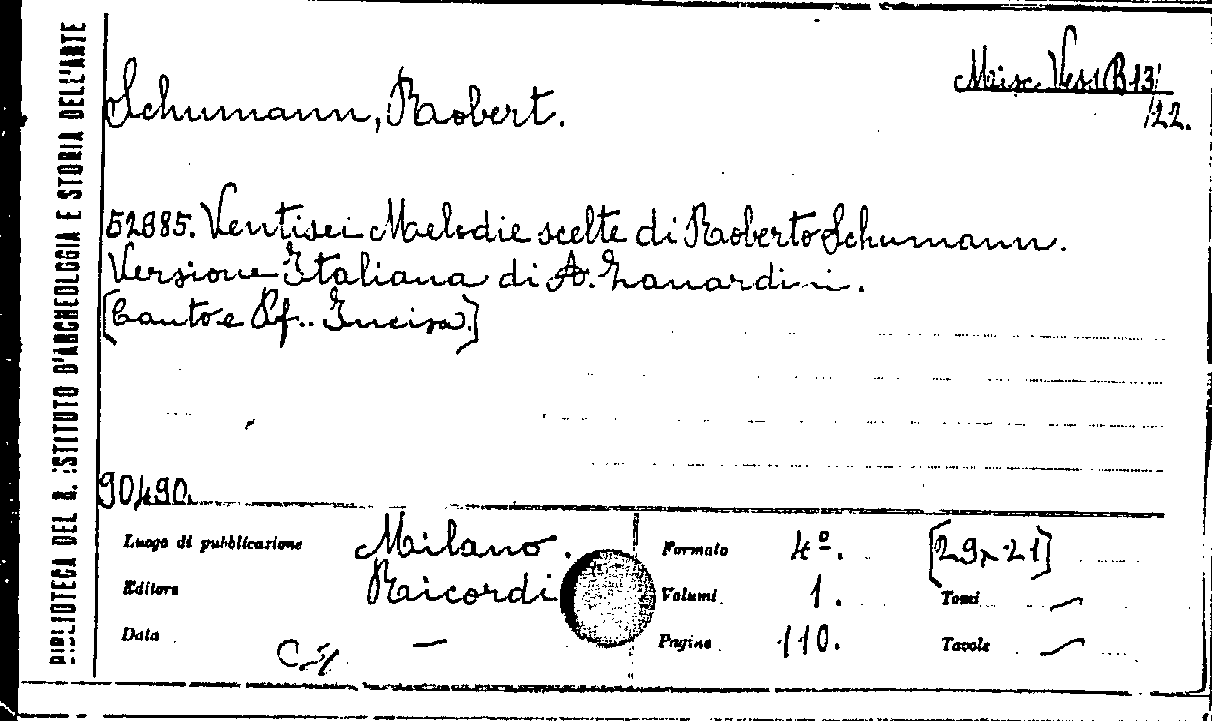 BIBLIOTECA DEL R. ISTITUTO D'ARCHEOLOGIA E STORIA DELL'ARTE
Misc. Vess. B 13/
/22.
Schumann, Robert.
52985. Ventisei Melodie scelte di Roberto Schumann.
Versione Italiana di A. Zanardini.
[Canto e Pf.. Incisa.]
90490.
Luogo di pubblicazione Milano. Formato 4º. [29x21]
Editore Ricordi Volumi 1. Tomi —
Data — Pagine 110. Tavole —